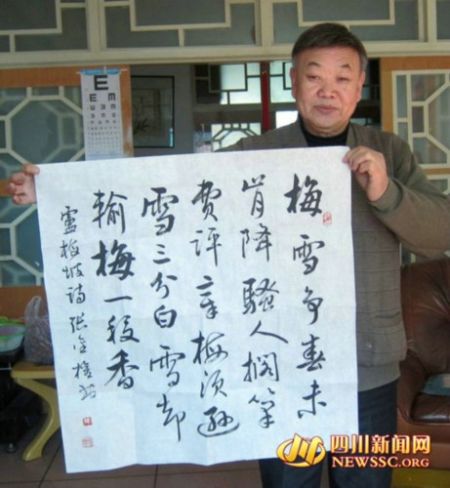 梅雪争春未
肯降骚人搁笔
费评章梅须逊
雪三分白雪却
输梅一段香
卢梅坡诗 张金
E
四川新闻网
NEWSSC.ORG